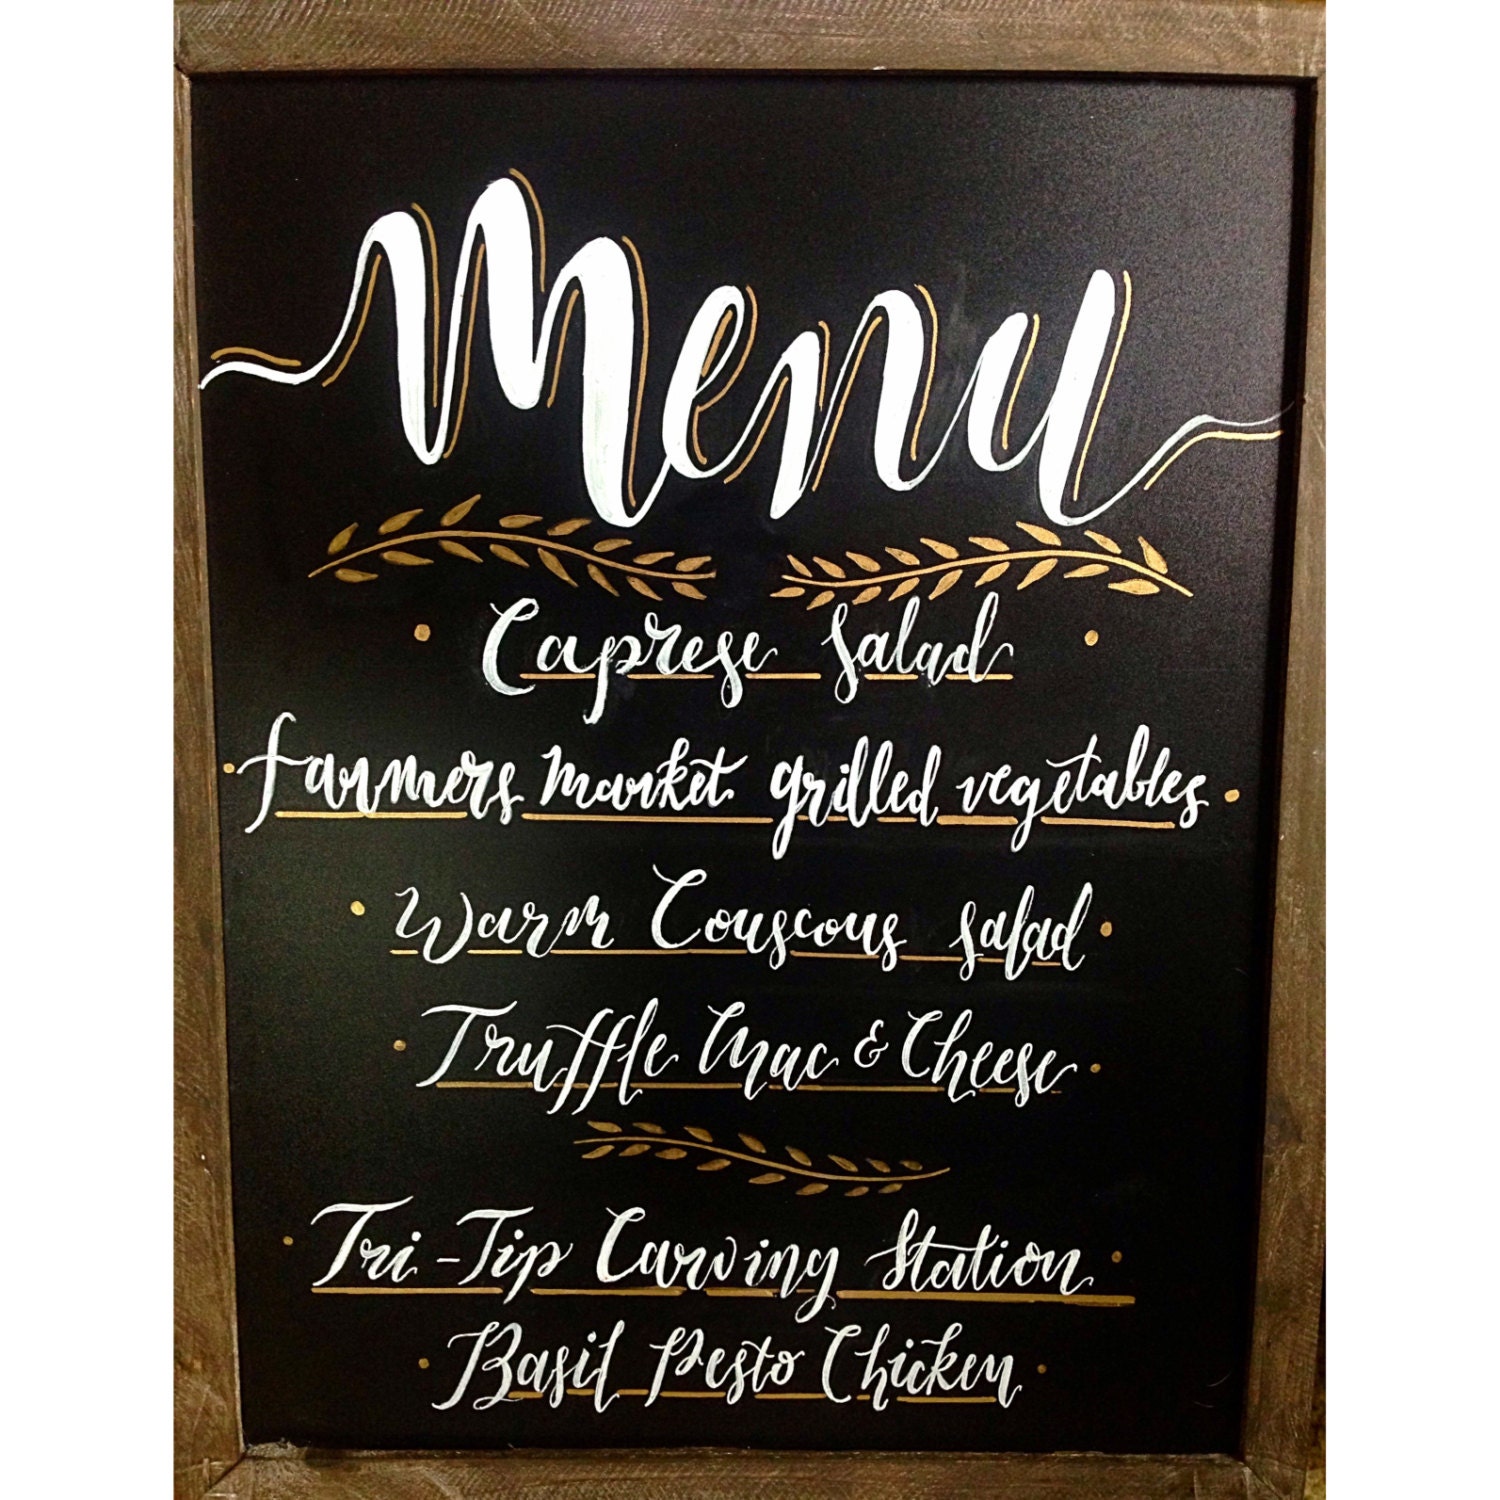 Menu
Caprese Salad
farmers market grilled vegetables
Warm Couscous salad
Truffle Mac & Cheese
Tri-Tip Carving Station
Basil Pesto Chicken